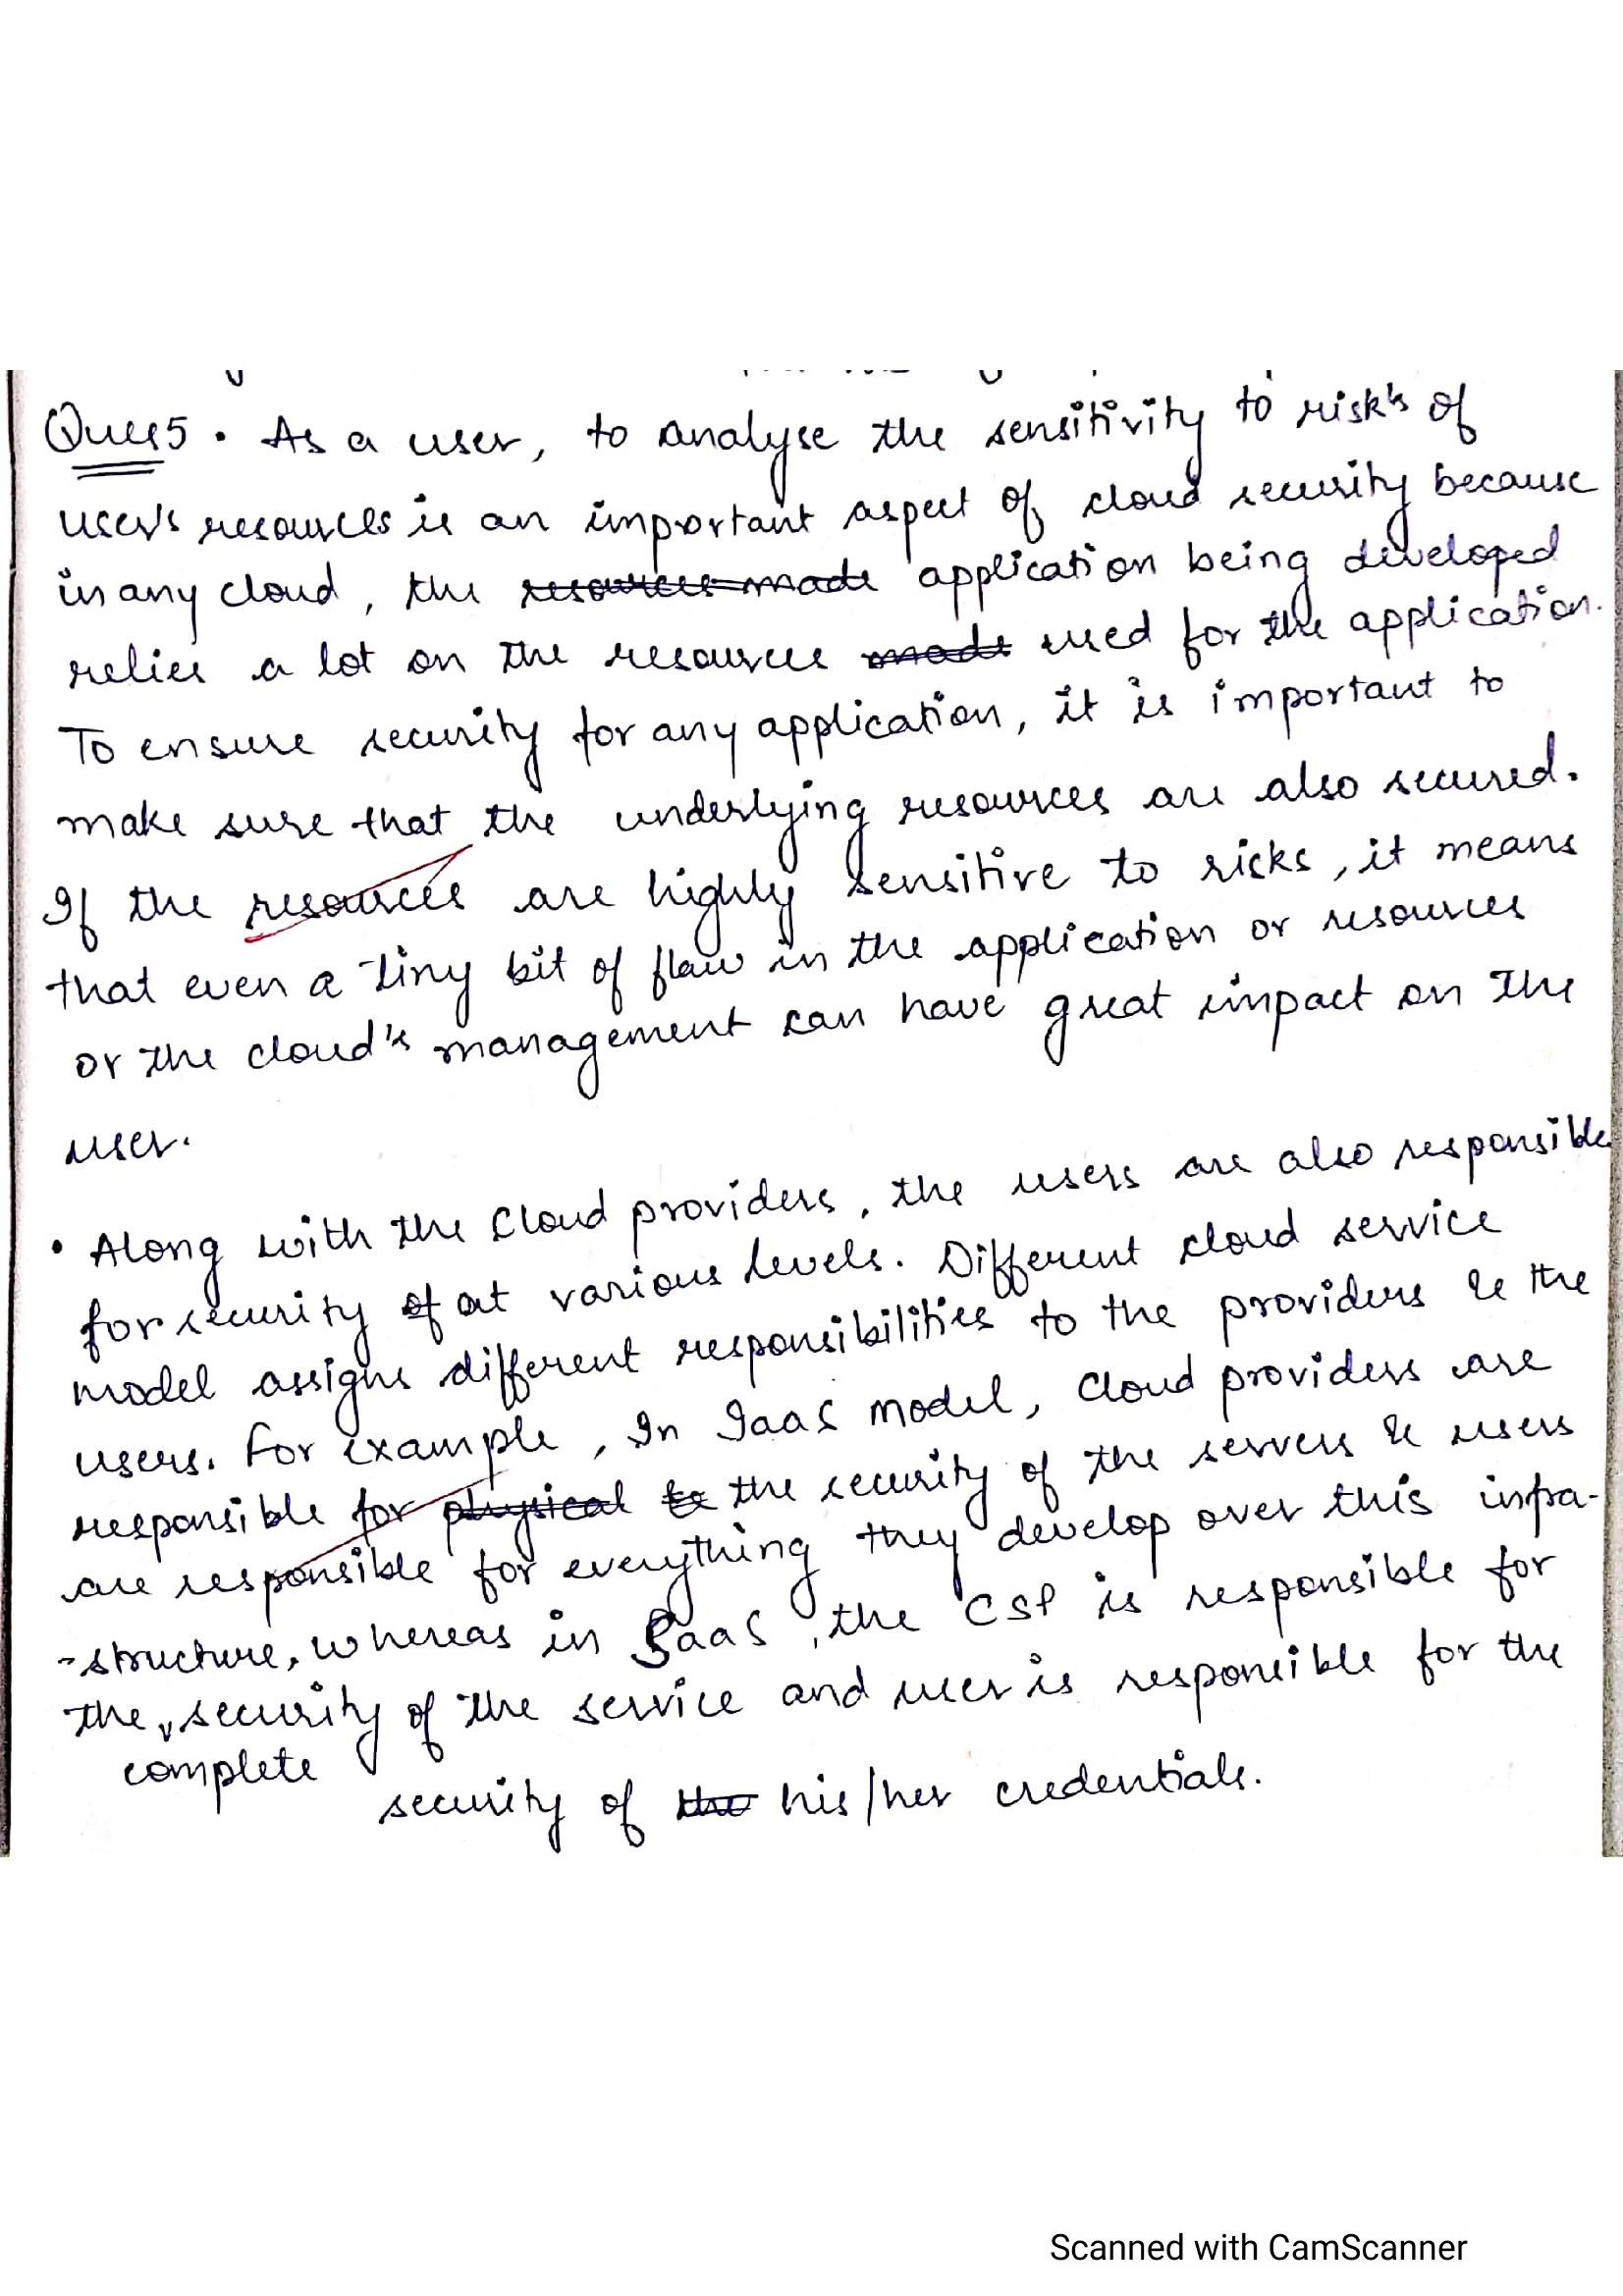 Ques5 • As a user, to analyse the sensitivity to risk's of
user's resources is an important aspect of cloud security because
in any cloud, the resources made application being developed
relies a lot on the resources made used for the application.
To ensure security for any application, it is important to
make sure that the underlying resources are also secured.
If the resources are highly sensitive to risks, it means
that even a tiny bit of flaw in the application or resources
or the cloud's management can have great impact on the
user.
• Along with the Cloud providers, the users are also responsible
for security of at various levels. Different cloud service
model assigns different responsibilities to the providers & the
users. For example, In IaaS model, Cloud providers are
responsible for physical to the security of the servers & users
are responsible for everything they develop over this infra-
-structure, whereas in SaaS, the CSP is responsible for
the security of the service and user is responsible for the
complete
security of the his/her credentials.
Scanned with CamScanner